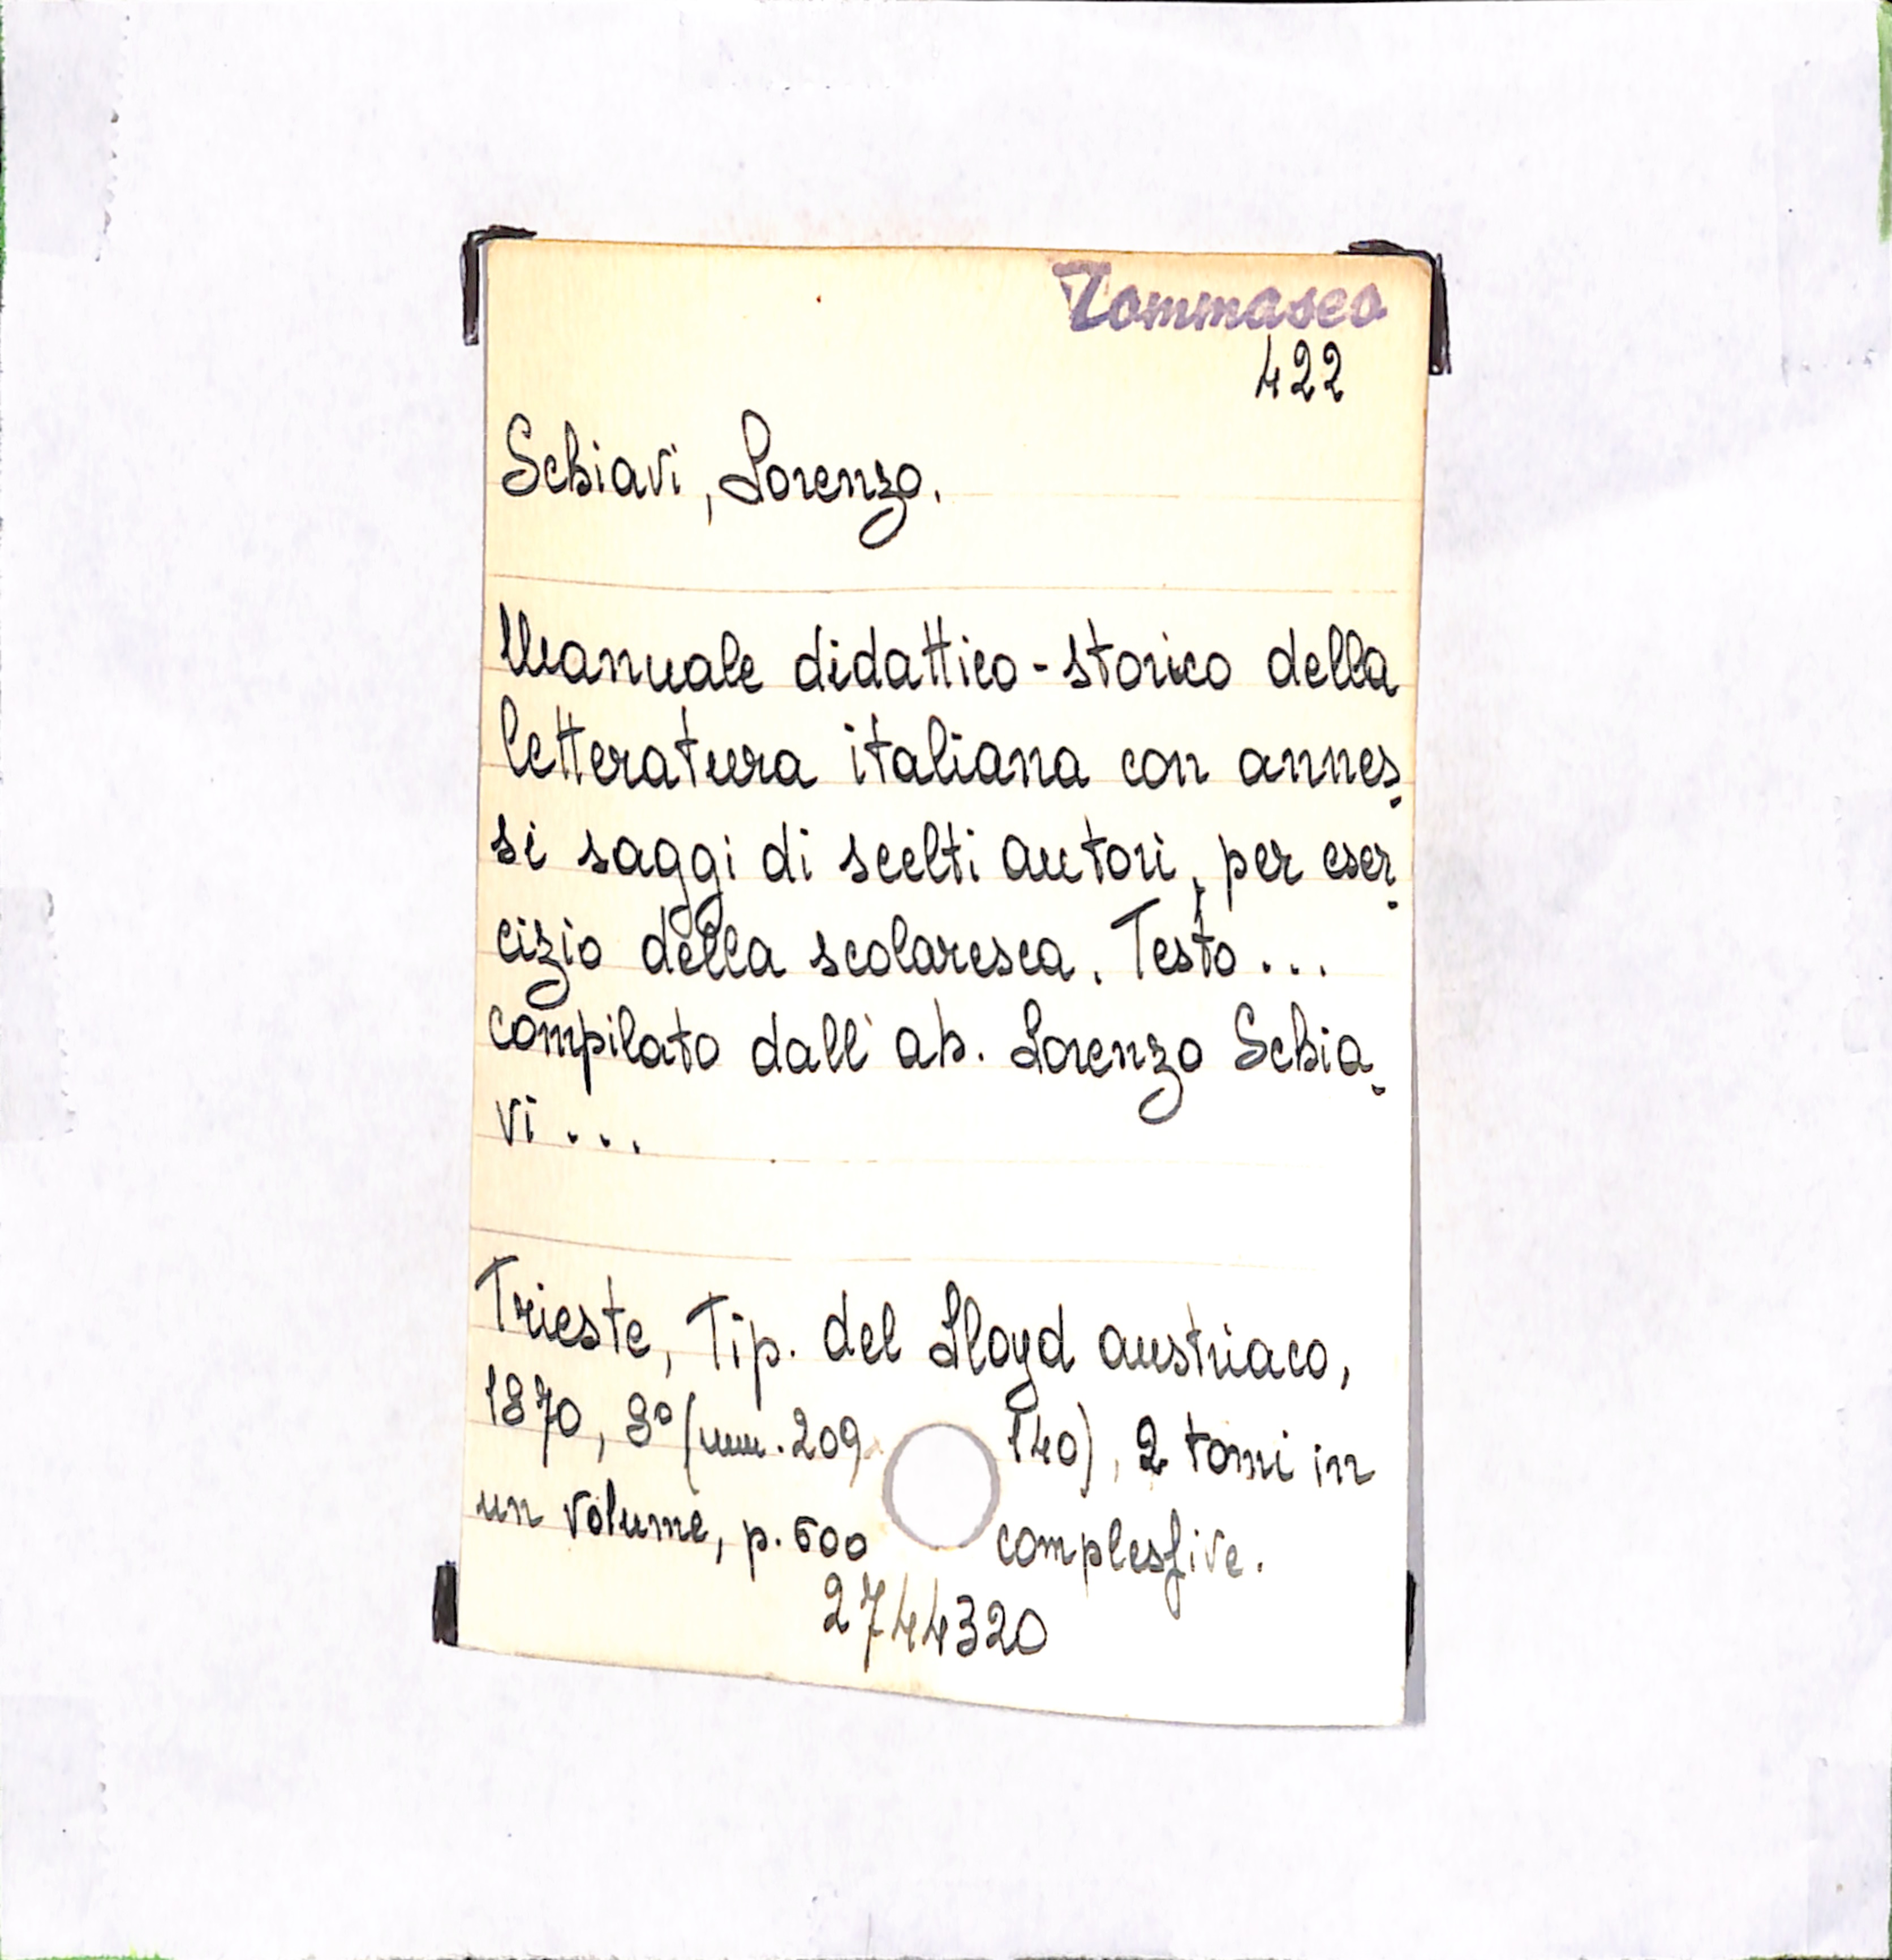 Tommaseo
422
Schiavi, Lorenzo.
Manuale didattico-storico della
letteratura italiana con annes-
si saggi di scelti autori, per eser-
cizio della scolaresca. Testo...
compilato dall'ab. Lorenzo Schia-
vi...
Trieste, Tip. del Lloyd austriaco,
1870, 8° (mm. 209 140), 2 tomi in
un volume, p. 600 complessive.
2744320